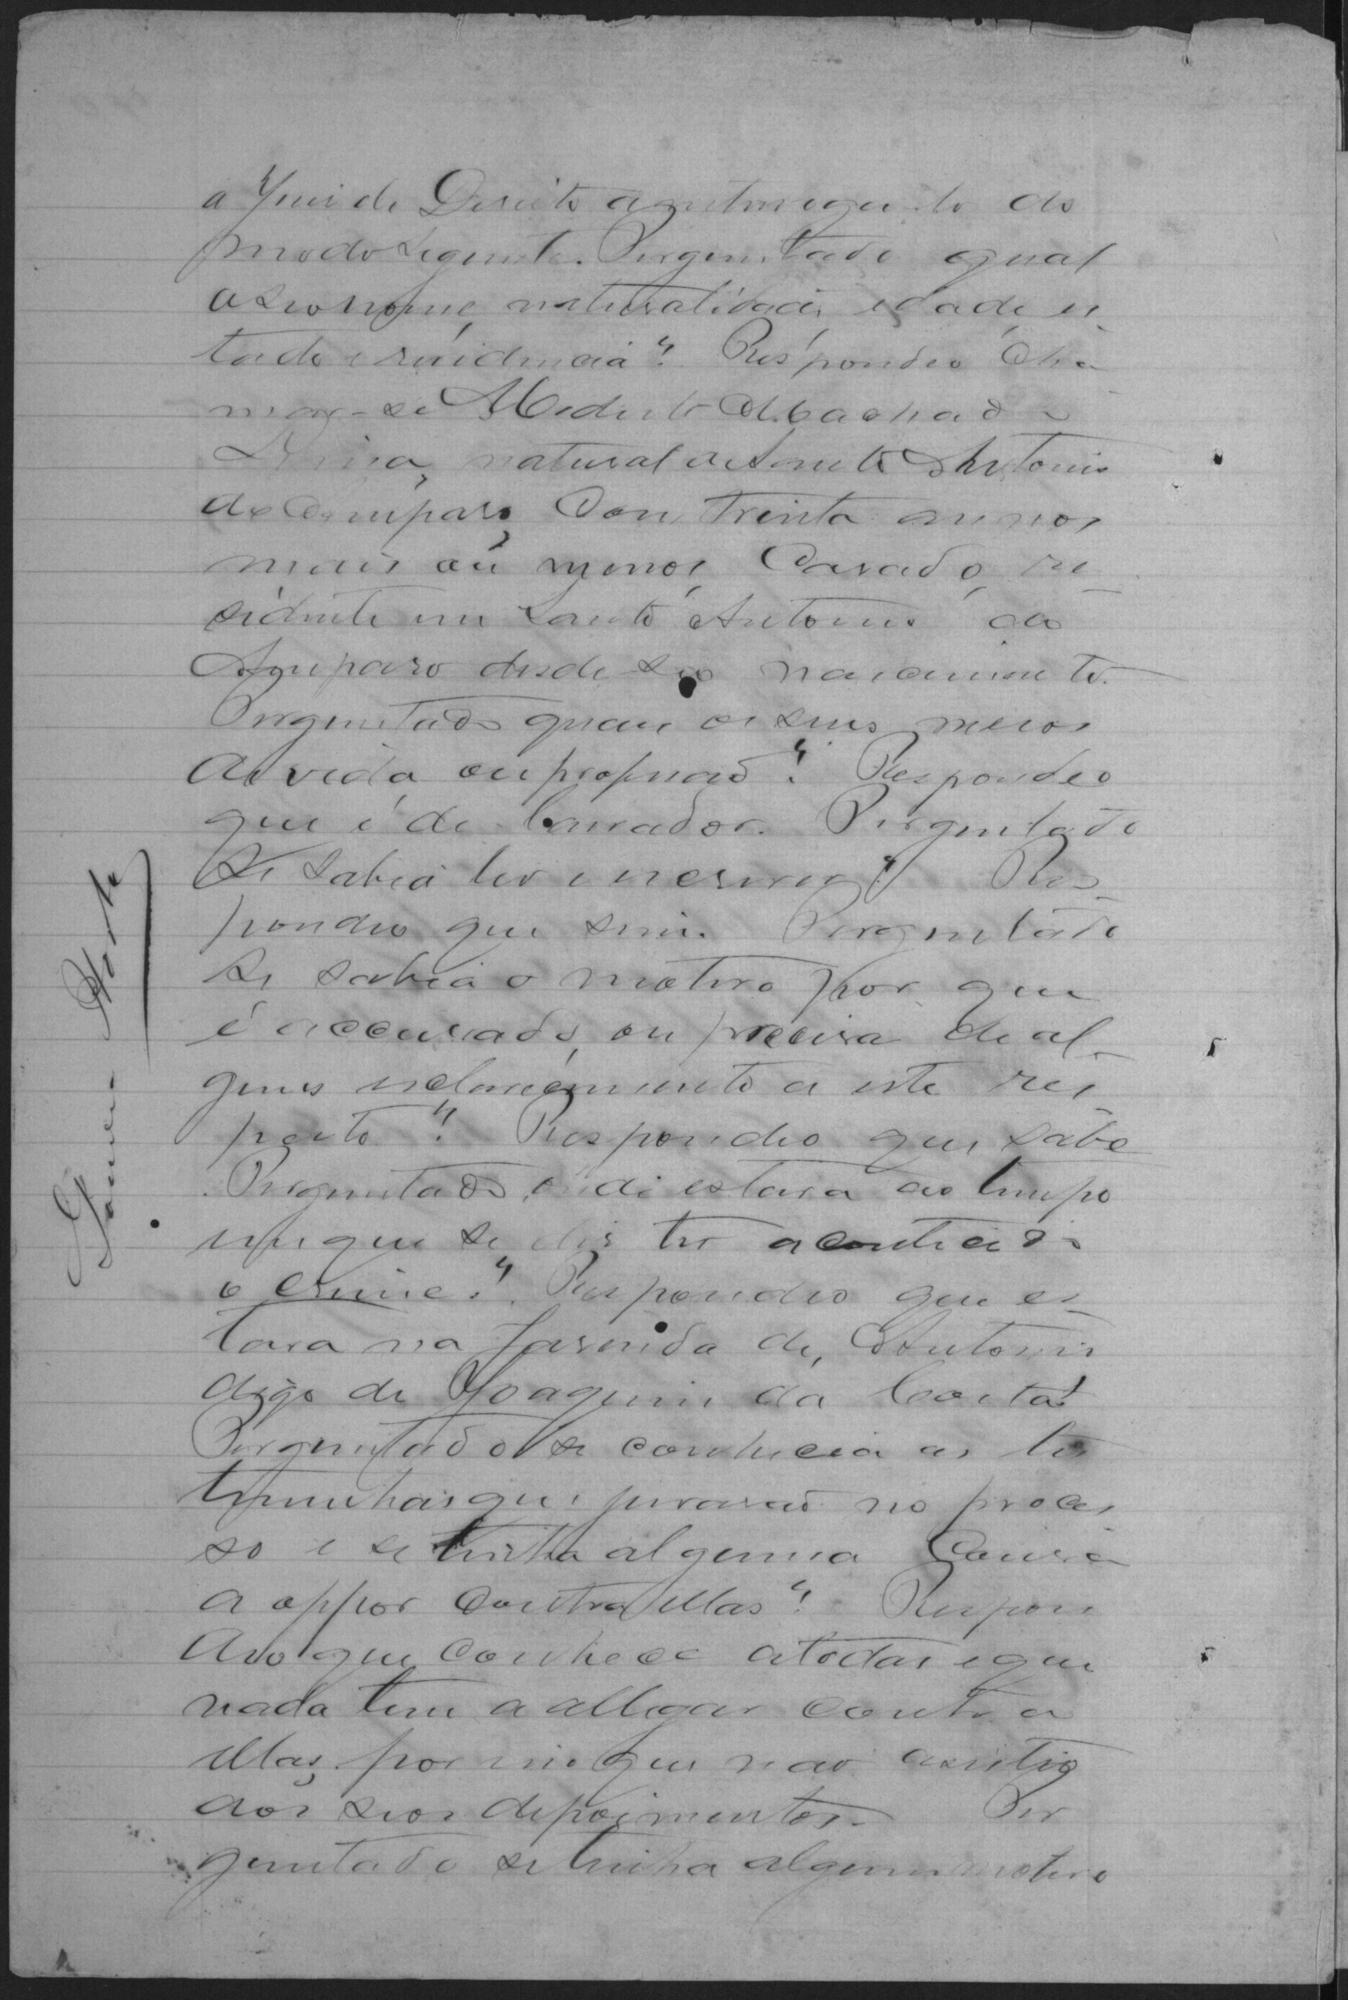 o Juiz de Direito o interrogou do
modo seguinte. Perguntado qual
o seo nome, naturalidade, edade, es
tado e residencia? Respondeo cha
mar-se Modesto Machado
natural de Santo Antonio
do Amparo, com trinta annos
mais ou menos, Casado, re
sidente em Santo Antonio do
Amparo desde seo nascimento.
Perguntado quais os seus meios
de vida ou profissaõ? Respondeo
que é de lavrador. Perguntado
se sabia ler e escrever? Res
pondeo que sim. Perguntado
se sabia o motivo por que
é accusado, ou precisa de al
guns esclarecimento a este res
peito? Respondeo que sabe
Perguntado, onde estava ao tempo
em que se diz ter acontecido
o crime? Respondeo que es
tava na fasenda de, Antonio
digo de Joaquim da Costa
Perguntado se conhecia as tes
temunhas que juraraõ no proces
so e se tinha alguma Cousa
a oppor contra ellas? Respon
deo que conhece a todas e que
nada tem a allegar contra
ellas, por que naõ assitio
aos seos depoimentos. Per
guntado se tinha algum motivo